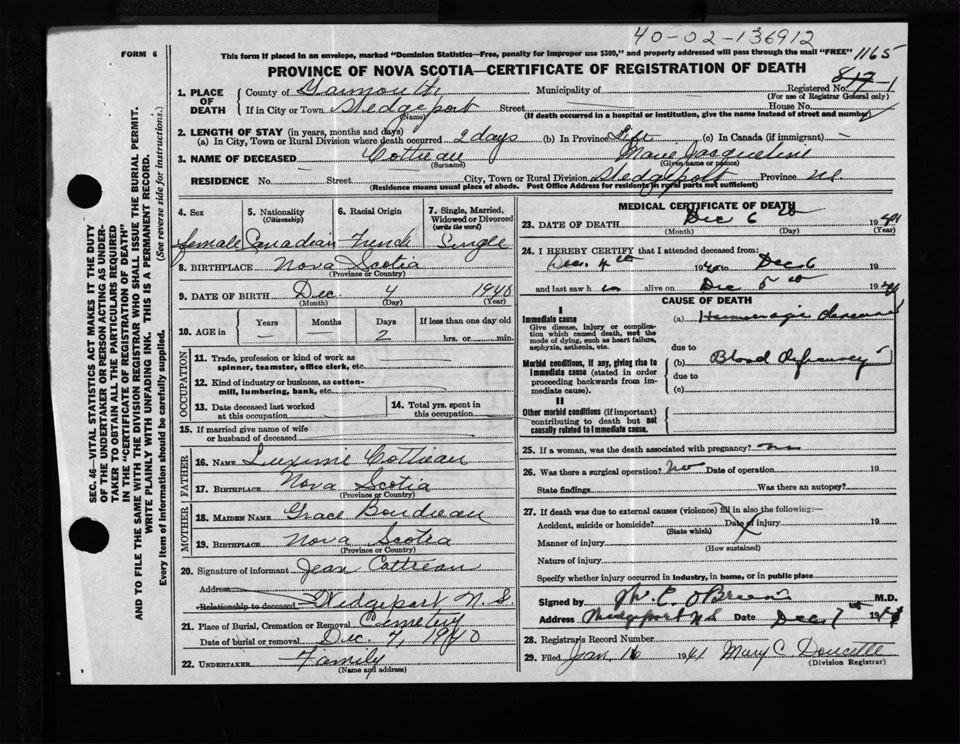 40-02-136912
FORM 6
This form if placed in an envelope, marked "Dominion Statistics—Free, penalty for improper use $300," and properly addressed will pass through the mail "FREE"
1165
PROVINCE OF NOVA SCOTIA—CERTIFICATE OF REGISTRATION OF DEATH
SEC. 46—VITAL STATISTICS ACT MAKES IT THE DUTY
OF THE UNDERTAKER OR PERSON ACTING AS UNDER-
TAKER TO OBTAIN ALL THE PARTICULARS REQUIRED
IN THE "CERTIFICATE OF REGISTRATION OF DEATH"
AND TO FILE THE SAME WITH THE DIVISION REGISTRAR WHO SHALL ISSUE THE BURIAL PERMIT.
WRITE PLAINLY WITH UNFADING INK. THIS IS A PERMANENT RECORD.
Every item of information should be carefully supplied. (See reverse side for instructions.)
1. PLACE OF DEATH County of Yarmouth Municipality of Registered No.
(For use of Registrar General only)
If in City or Town Wedgeport Street House No.
(Name) (If death occurred in a hospital or institution, give the name instead of street and number)
2. LENGTH OF STAY (in years, months and days)
(a) In City, Town or Rural Division where death occurred 2 days (b) In Province Life (c) In Canada (if immigrant)
3. NAME OF DECEASED Cottreau Marie Jacqueline
(Surname) (Given name or names)
RESIDENCE No. Street City, Town or Rural Division Wedgeport Province N.S.
(Residence means usual place of abode. Post Office Address for residents in rural parts not sufficient)
4. Sex 5. Nationality (Citizenship) 6. Racial Origin 7. Single, Married, Widowed or Divorced (write the word)
female Canadian French Single
8. BIRTHPLACE Nova Scotia
(Province or Country)
9. DATE OF BIRTH Dec. 4 1940
(Month) (Day) (Year)
10. AGE in Years Months Days If less than one day old
— — 2 hrs. or min.
OCCUPATION
11. Trade, profession or kind of work as
spinner, teamster, office clerk, etc.
12. Kind of industry or business, as cotton-
mill, lumbering, bank, etc.
13. Date deceased last worked
at this occupation
14. Total yrs. spent in
this occupation
15. If married give name of wife
or husband of deceased
FATHER
16. NAME Luxime Cottreau
17. BIRTHPLACE Nova Scotia
(Province or Country)
MOTHER
18. MAIDEN NAME Grace Boudreau
19. BIRTHPLACE Nova Scotia
(Province or Country)
20. Signature of informant Jean Cottreau
Address
Relationship to deceased Wedgeport N.S.
21. Place of Burial, Cremation or Removal Cemetery
Date of burial or removal Dec. 7, 1940
22. UNDERTAKER Family
(Name and address)
MEDICAL CERTIFICATE OF DEATH
23. DATE OF DEATH Dec 6 19
(Month) (Day) (Year)
24. I HEREBY CERTIFY that I attended deceased from:
Dec. 4th 1940 to Dec 6 19
and last saw h alive on Dec 5 19
CAUSE OF DEATH
I
Immediate cause
Give disease, injury or complica-
tion which caused death, not the
mode of dying, such as heart failure,
asphyxia, asthenia, etc.
(a) Hemorrhagic disease
due to
Morbid conditions, if any, giving rise to
immediate cause (stated in order
proceeding backwards from im-
mediate cause).
(b) Blood Deficiency
due to
(c)
II
Other morbid conditions (if important)
contributing to death but not
causally related to immediate cause.
25. If a woman, was the death associated with pregnancy? no
26. Was there a surgical operation? No Date of operation 19
State findings Was there an autopsy?
27. If death was due to external causes (violence) fill in also the following:—
Accident, suicide or homicide? Date of injury 19
(State which)
Manner of injury
(How sustained)
Nature of injury
Specify whether injury occurred in industry, in home, or in public place
Signed by M. C. O'Brien M.D.
Address Wedgeport N.S. Date Dec 7th 19
28. Registrar's Record Number
29. Filed Jan. 16 1941 Mary C. Doucette
(Division Registrar)